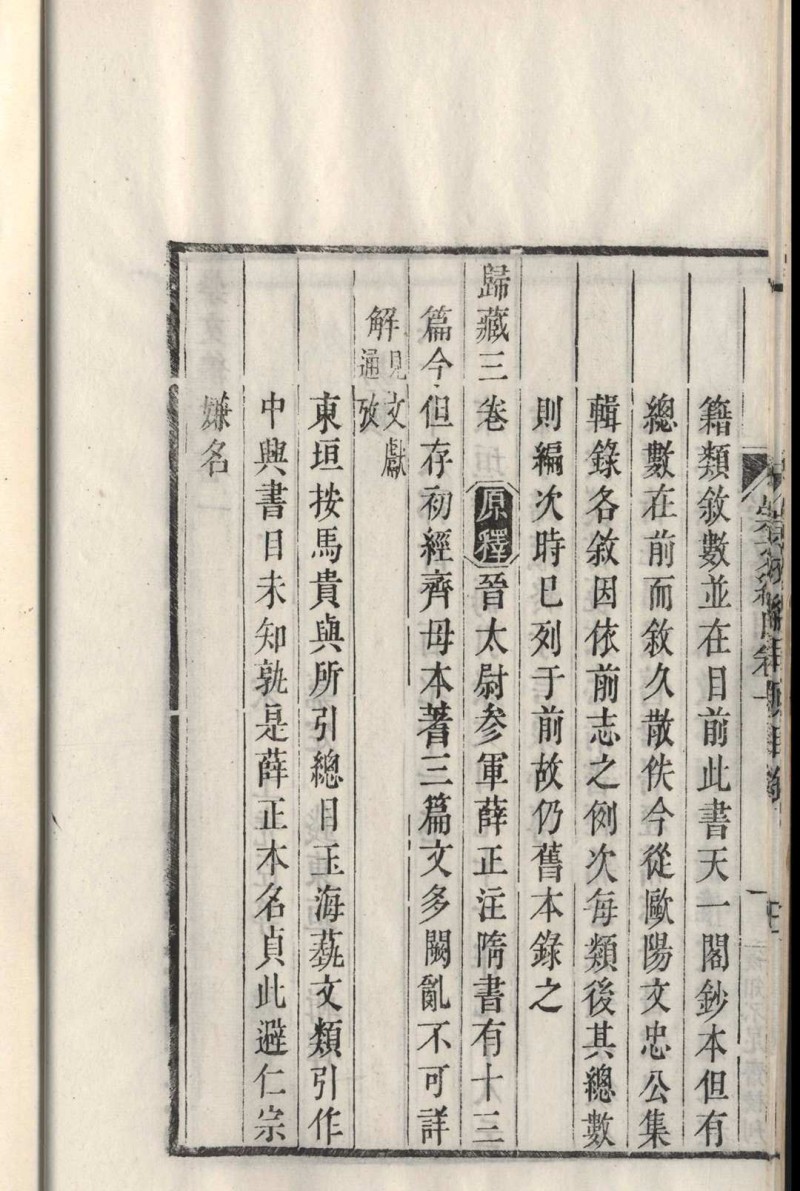 籍類敘數並在目前此書天一閣鈔本但有
總數在前而敘久散佚今從歐陽文忠公集
輯錄各敘因依前志之例次每類後其總數
則編次時已列于前故仍舊本錄之
歸藏三卷 原釋 晉太尉參軍薛正注隋書有十三
篇今但存初經齊母本蓍三篇文多闕亂不可詳
解見文獻通攷
東垣按馬貴與所引總目玉海蓺文類引作
中興書目未知孰是薛正本名貞此避仁宗
嫌名